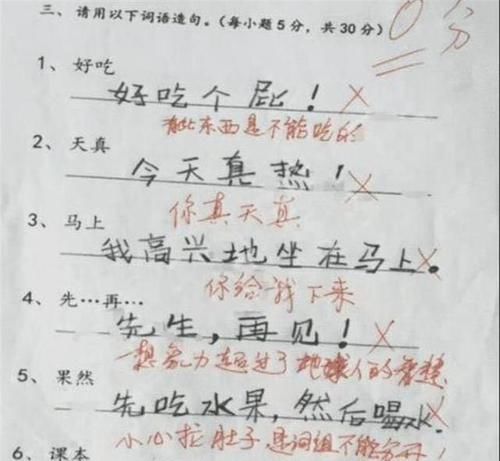 三、请用以下词语造句。(每小题5分，共30分)
0分
1、好吃
好吃个屁！
有些东西是不能吃的
2、天真
今天真热！
你真天真
3、马上
我高兴地坐在马上。
你给我下来
4、先…再…
先生，再见！
想象力超过了地球人的智慧
5、果然
先吃水果，然后喝水.
小心拉肚子是词组不能分开！
6、课本